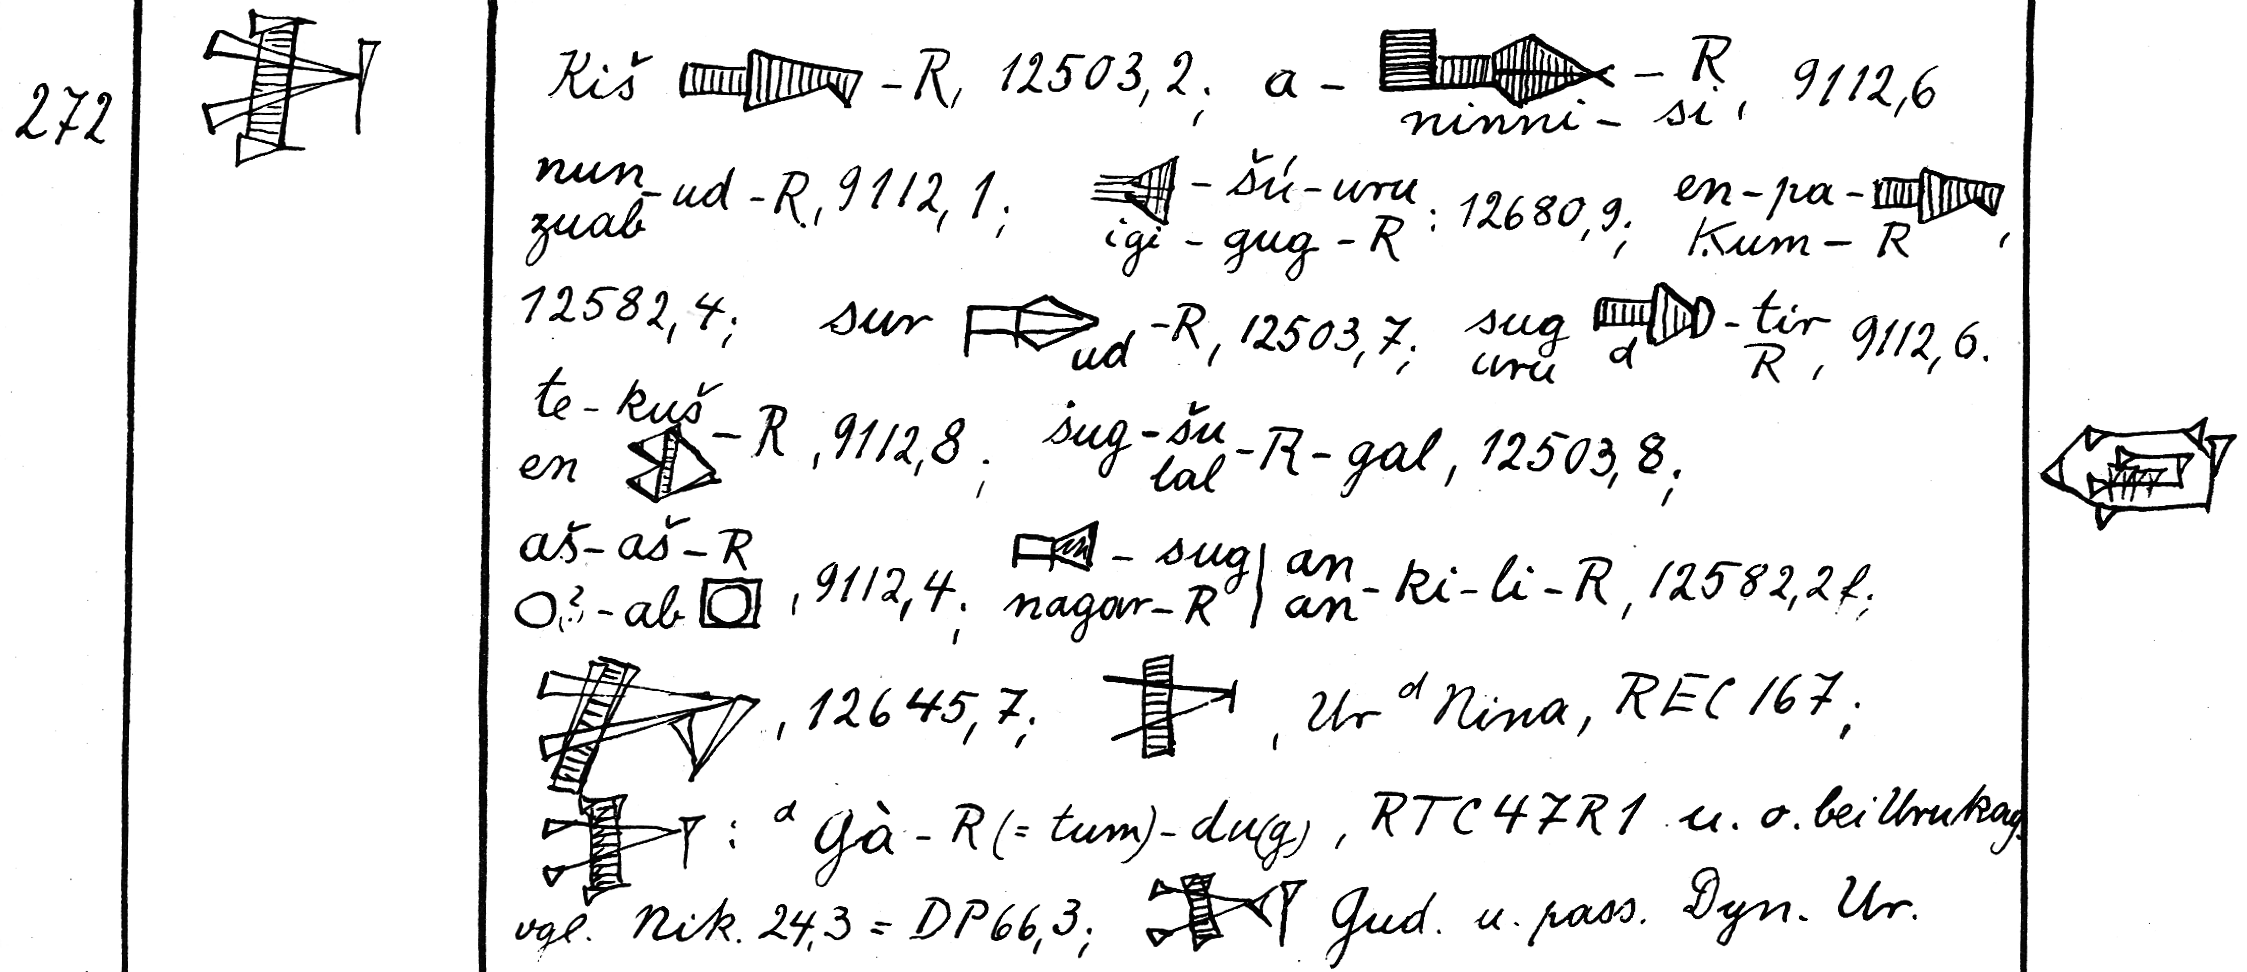 272
Kiš -R, 12503,2; a- -R 9112,6
ninni-si,
nun
zuab -ud-R, 9112,1; -šú-uru : 12680,9; en-pa-
igi-gug-R Kum-R ,
12582,4; sur ud -R, 12503,7; sug d -tir
uru R , 9112,6.
te-kuš
en -R, 9112,8; šug-šu
lal -R-gal, 12503,8;
aš-aš-R
O?-ab , 9112,4; -sug
nagar-R | an
an -ki-li-R, 12582,2f;
, 12645,7; , Ur d Nina, REC 167;
: d Gà-R(=tum)-du(g), RTC 47 R1 u. o. bei Urukag.
vgl. Nik. 24,3 = DP 66,3; Gud. u. pass. Dyn. Ur.